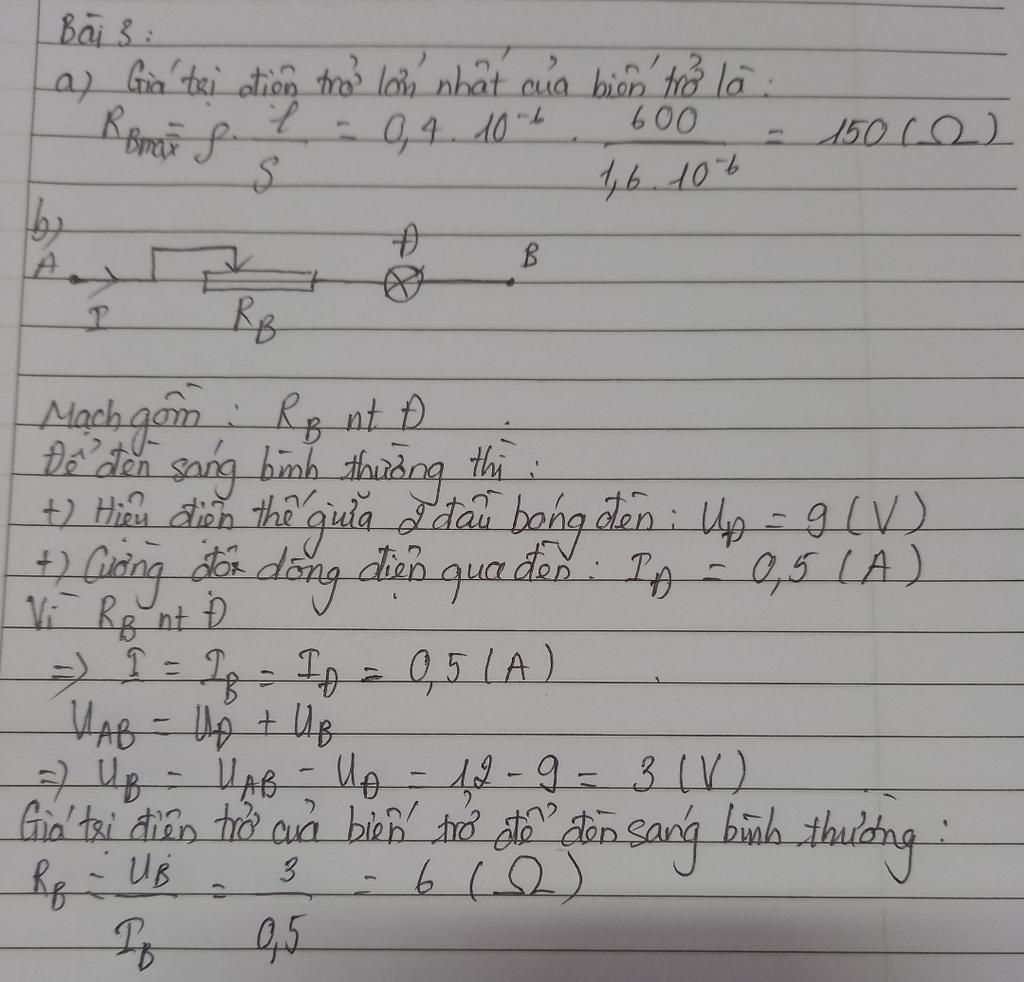 Bài 3:
a) Giá trị điện trở lớn nhất của biến trở là:
R_Bmax = ρ . l/S = 0,4 . 10⁻⁶ . 600/(1,6 . 10⁻⁶) = 150 (Ω)
b)
A I R_B Đ B
Mạch gồm : R_B nt Đ
Để đèn sáng bình thường thì :
+) Hiệu điện thế giữa 2 đầu bóng đèn : U_Đ = 9 (V)
+) Cường độ dòng điện qua đèn : I_Đ = 0,5 (A)
Vì R_B nt Đ
=> I = I_B = I_Đ = 0,5 (A)
U_AB = U_Đ + U_B
=> U_B = U_AB - U_Đ = 12 - 9 = 3 (V)
Giá trị điện trở của biến trở để đèn sáng bình thường :
R_B = U_B/I_B = 3/0,5 = 6 (Ω)